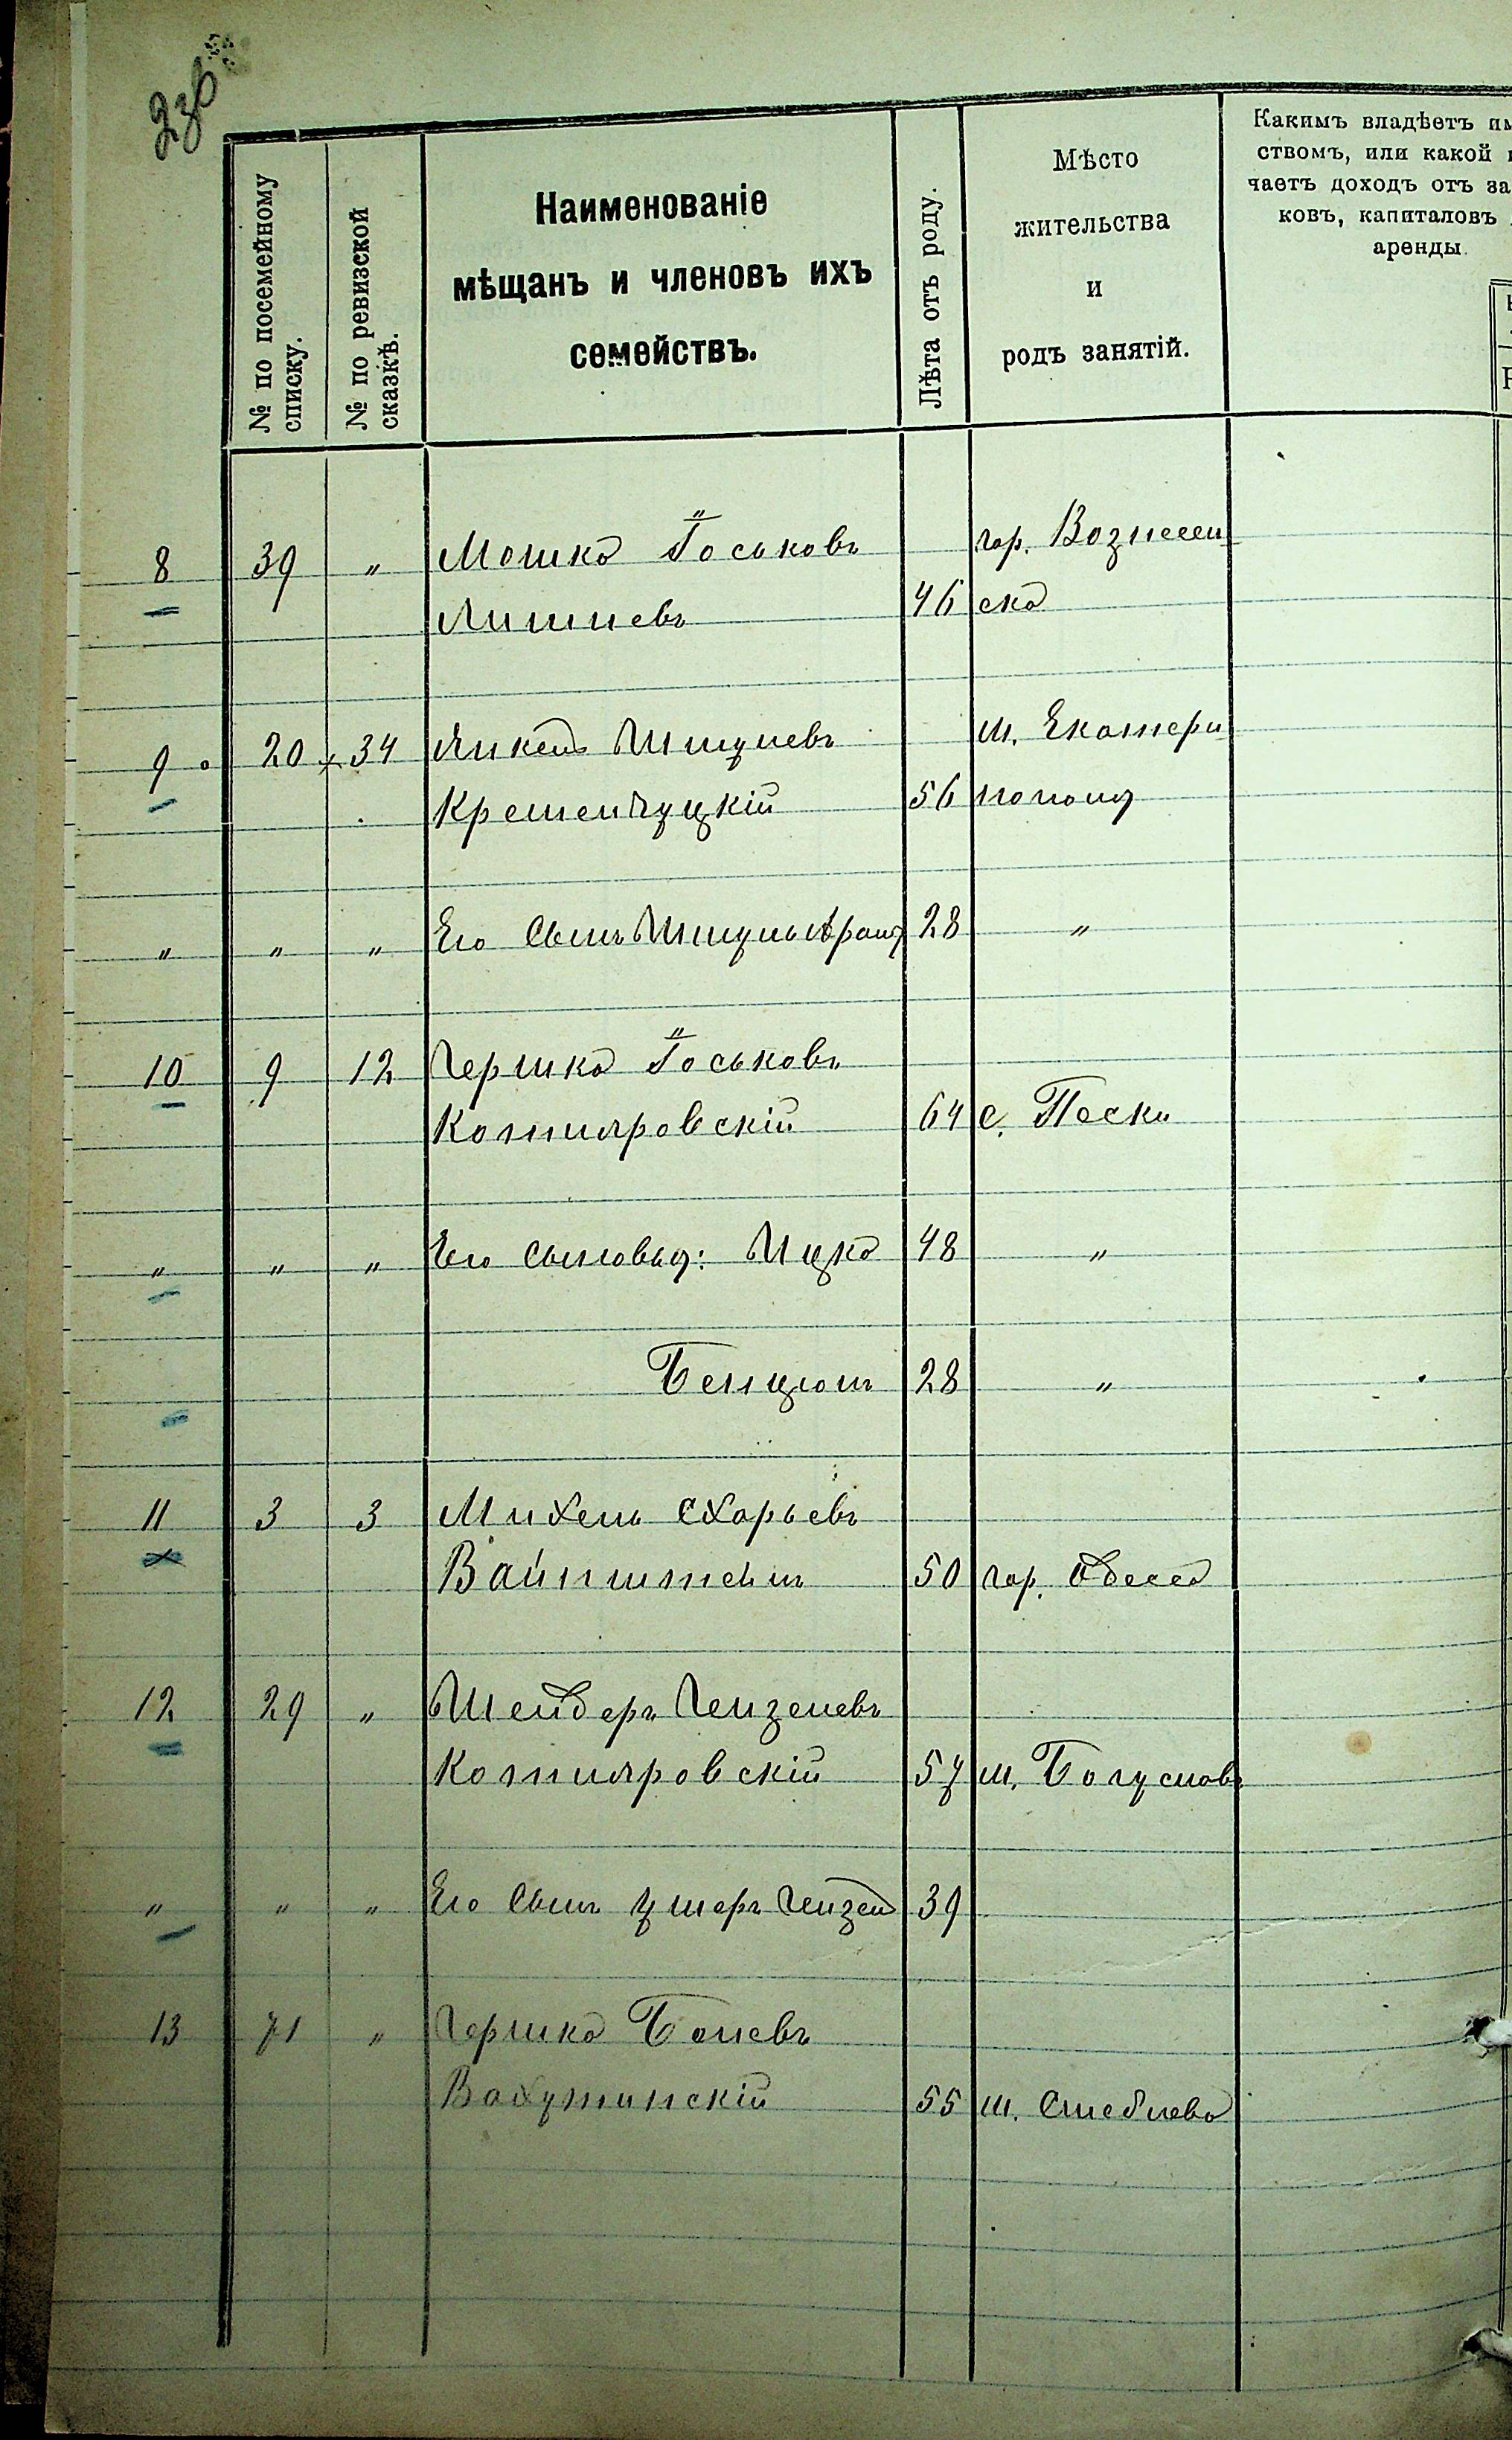 236
№ по посемейному
списку.
№ по ревизской
сказкѣ.
Наименованіе
мѣщанъ и членовъ ихъ
семействъ.
Лѣта отъ роду.
Мѣсто
жительства
и
родъ занятій.
Какимъ владѣетъ им
ствомъ, или какой
чаетъ доходъ отъ за
ковъ, капиталовъ
аренды.
8 39 " Мошко Іоськовъ гор. Вознесен
46 ска
9 20 34 Янкель Шмулевъ м. Екатери
Кременчуцкій 56 нополь
" " " Его Сынъ Шмуль 28 "
10 9 12 Гершко Іоськовъ
Котляровскій 64 с. Пески
" " " Его сыновья: Ицко 48 "
Бенціонъ 28 "
11 3 3 Михель Схарьевъ
Вайнштейнъ 50 гор. Одесса
12 29 " Шендеръ Лейзеровъ
Котляровскій 57 м. Богуславъ
" " " Его Сынъ Ушеръ Лейзер 39
13 71 " Гершко
Вахутинскій 55 м. Стеблево